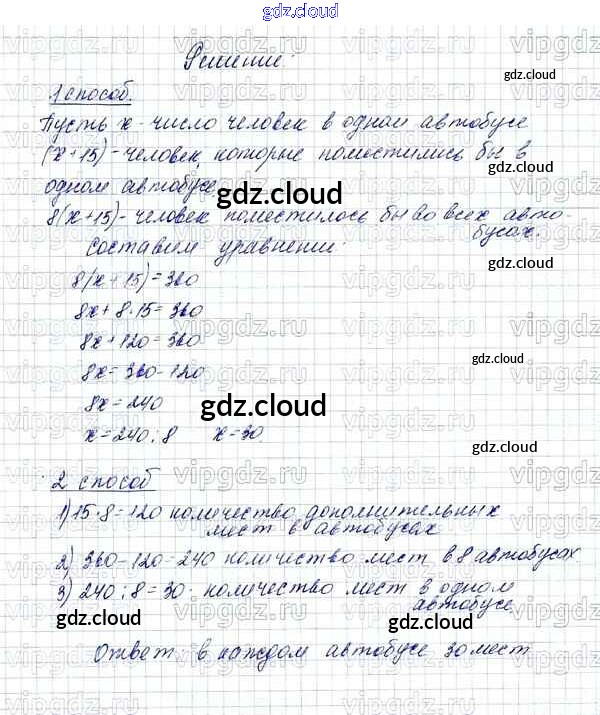 gdz.cloud
Решение:
gdz.cloud
1 способ.
Пусть x - число человек в одном автобусе
(x+15) - человек, которые поместились бы в
одном автобусе
gdz.cloud
8(x+15) - человек поместилось бы во всех авто-
бусах.
Составим уравнение:
gdz.cloud
8(x+15)=360
8x+8·15=360
8x+120=360
gdz.cloud
8x=360-120
8x=240
gdz.cloud
x=240:8 x=30.
gdz.cloud
2 способ
1) 15·8=120 количество дополнительных
мест в автобусах
2) 360-120=240 количество мест в 8 автобусах
3) 240:8=30. количество мест в одном
автобусе
gdz.cloud
gdz.cloud
Ответ: в каждом автобусе 30 мест
vipgdz.ru